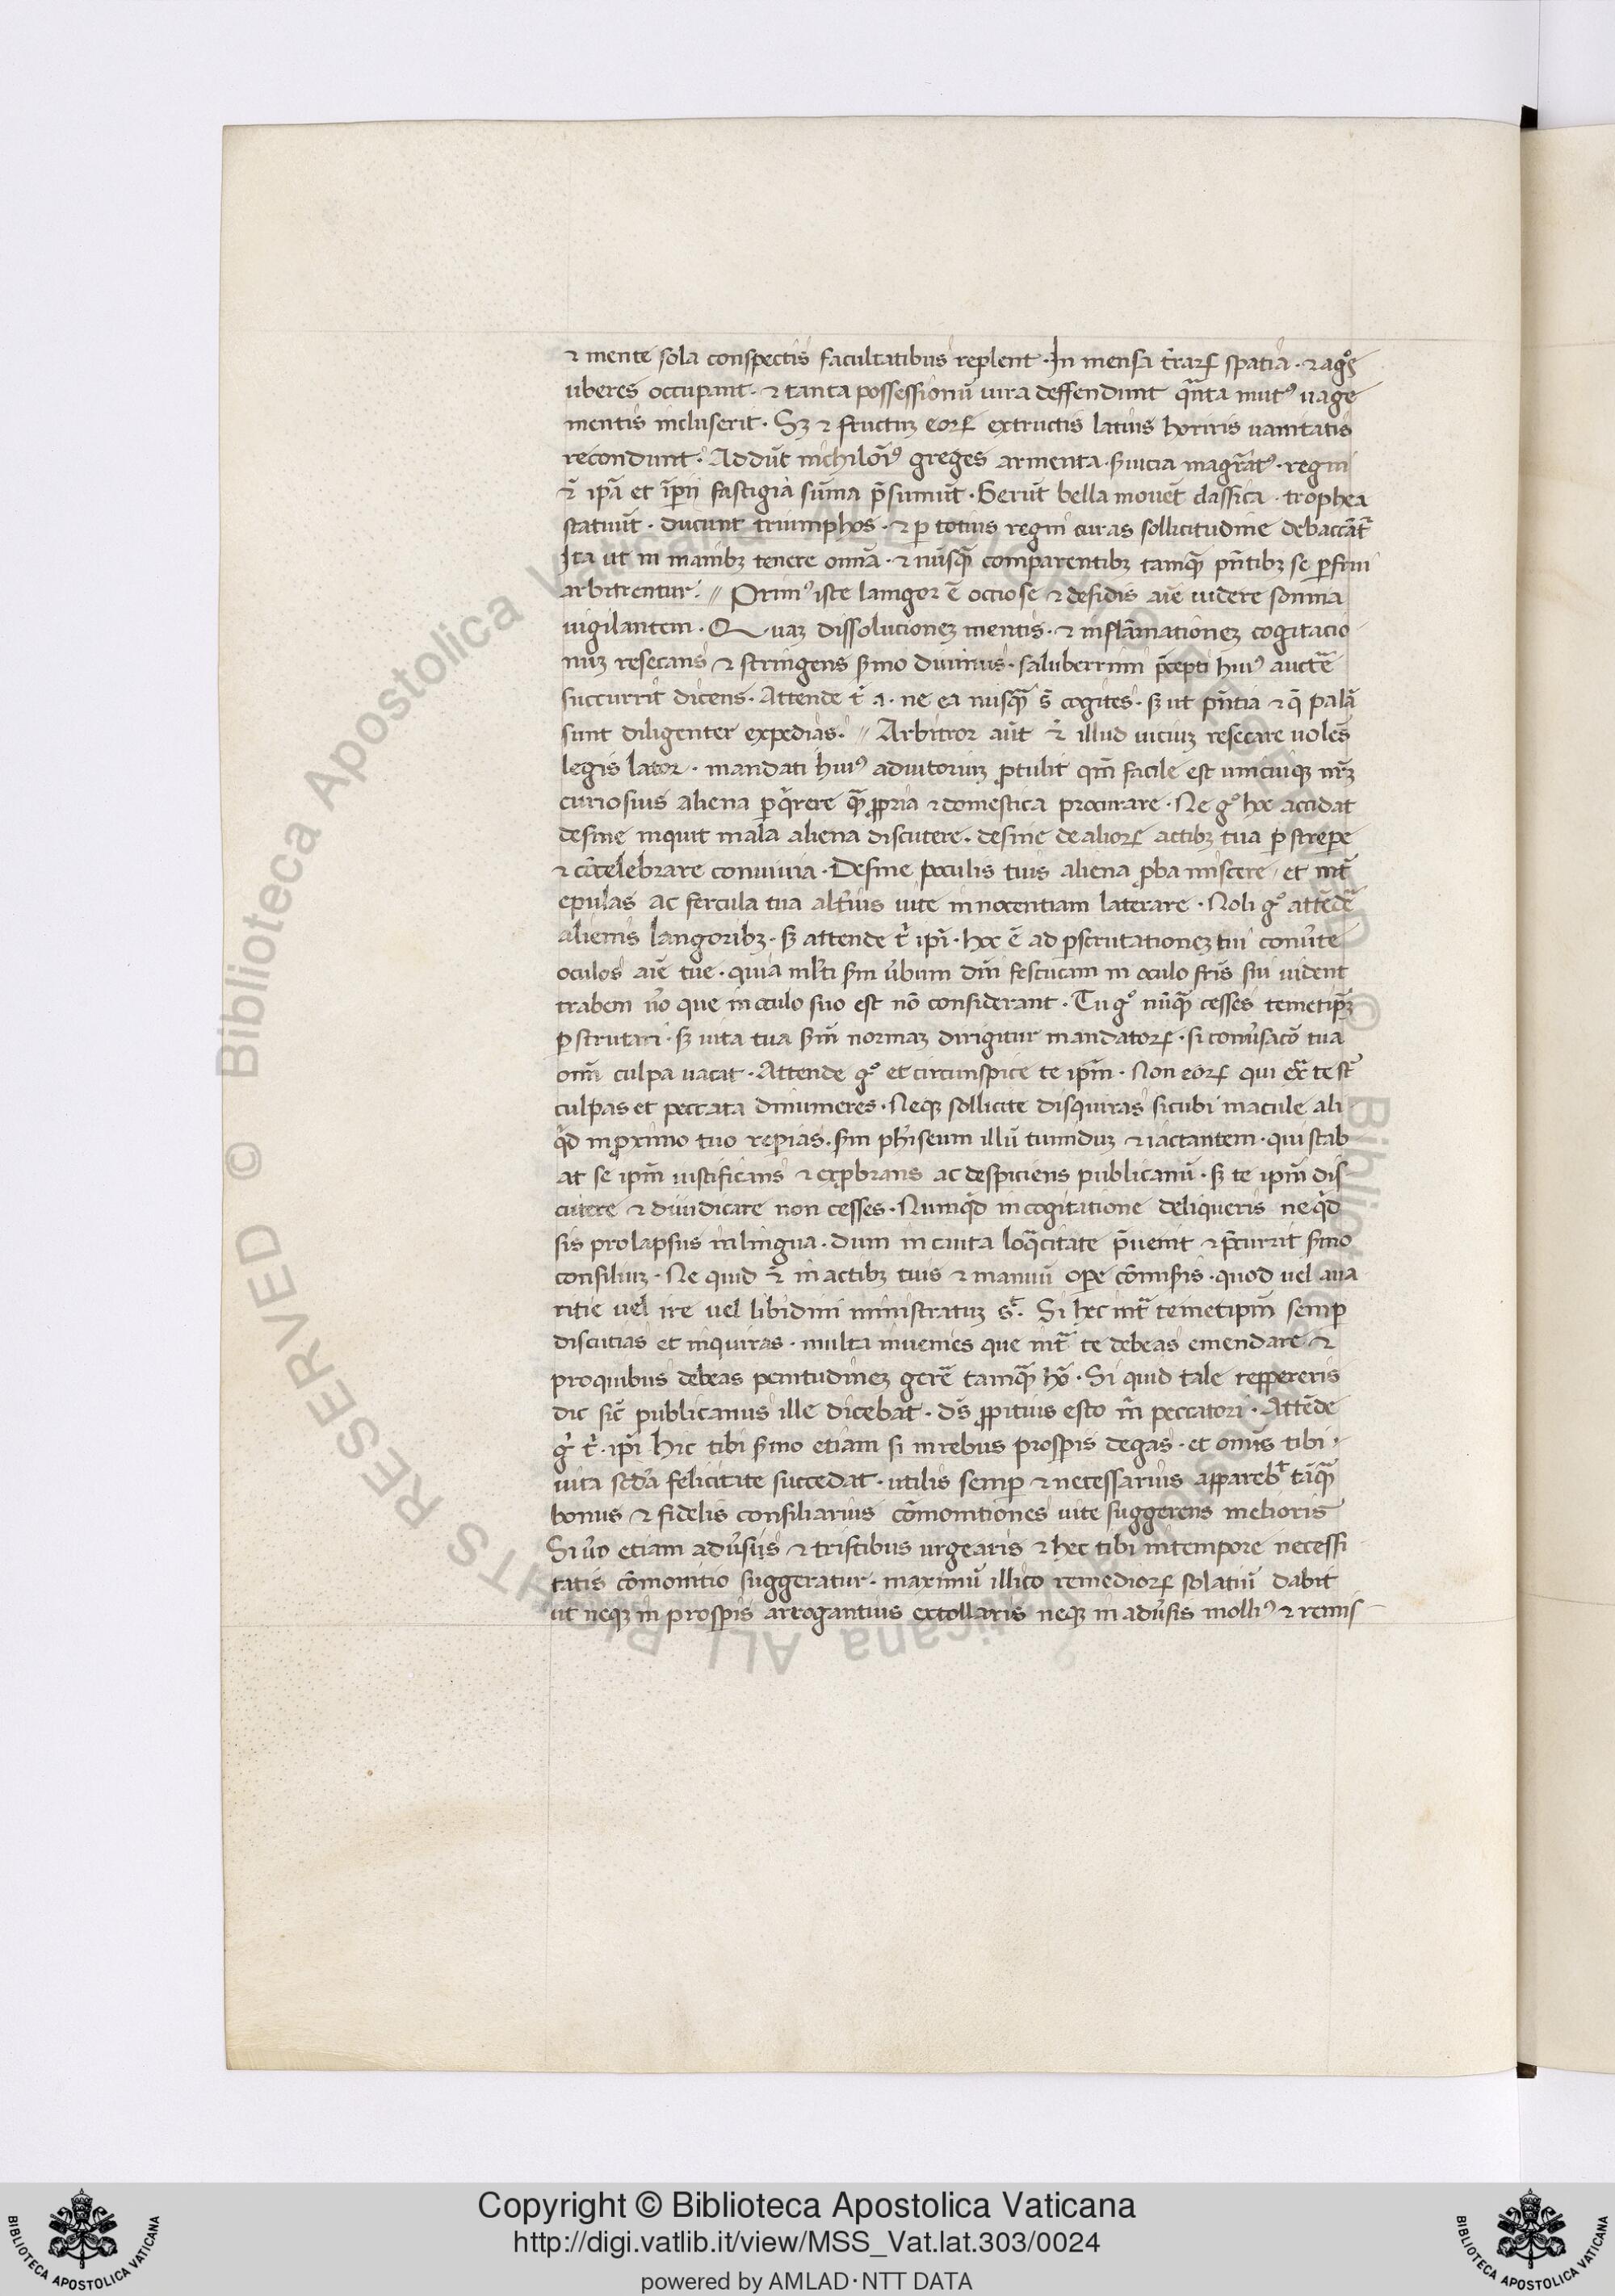 ⁊ mente sola conspectis facultatibus replent · In mensa t̓raꝝ spatia · ⁊ agꝰs
uberes occupant · ⁊ tanta possessionū iura deffendunt qͣnta mutꝰ uage
mentis incluserit · Sꝫ ⁊ fructuꝫ eoꝝ extructis latius horriis uanitatis
recondunt · Addūt nichilōīꝰ greges armenta · s̓uicia magr̄atꝰ · regni
⁊̄ ip̄ā et īp̄ii fastigia sūma p̄sumūt · Gerūt bella mouēt classica · trophea
statuūt · ducunt triumphos · ⁊ ꝑ totius regni curas sollicitudine debaccāt᷑
Ita ut in manibꝫ tenere omīa · ⁊ nūsqͣ̄ comparentibꝫ tamqͣ̄ pn̄tibꝫ se ꝑfrui
arbitrentur · // Primꝰ iste langor ē occiose ⁊ desidis aīe uidere sonnia
uigilantem · Quaꝫ dissolucioneꝫ mentis · ⁊ inflāmationeꝫ cogitacio
nuꝫ resecans ⁊ stringens s̓mo diuinus · saluberrimi p̄cepti huiꝰ auct̄e
succurrit dicens · Attende t̓ · a · ne ea nusqͣ̄ s̄ cogites · sꝫ ut pn̄tia ⁊ q̄ palā
sunt diligenter expedias · // Arbitror aūt ⁊̄ illud uiciuꝫ resecare uolēs
legis lator · mandati huiꝰ adiutoriuꝫ ꝓtulit qm̄ facile est unicuiqꝫ nr̄ꝫ
curiosius aliena ꝑq̓rere qͣ̄ ꝓpria ⁊ domestica procurare · Ne gͦ hoc accidat
desine inquit mala aliena discutere · desine de alioꝝ actibꝫ tua ꝑstrepe
⁊ cōcelebrare conuiuia · Desine poculis tuis aliena ꝓba miscere · et int̄
epulas ac fercula tua alt̓ius uite innocentiam laterare · Noli gͦ attēdē
alienis langoribꝫ · sꝫ attende t̓ ip̄i · hoc ē ad ꝑscrutationeꝫ tui conūte
oculos aīe tue · quia ml̓ti s̄m ūbum dn̄i festucam in oculo fr̄is sui uident
trabem ūo que in oculo suo est nō considerant · Tu gͦ nūqͣ̄ cesses temetip̄ꝫ
ꝑscrutari · sꝫ uita tua s̄m normaꝫ dirigitur mandatoꝝ · si conūsacō tua
omī culpa uacat · Attende gͦ et circunspice te ip̄m · Non eoꝝ qui ex̄ te st̄
culpas et peccata dinumeres · Neqꝫ sollicite disquiras sicubi macule ali
q̓d in ꝓximo tuo reꝑias · s̄m ph̓iseum illū tumiduꝫ ⁊ iactantem · qui stab
at se ip̄m iustificans ⁊ exꝓbrans ac despiciens publicanū · sꝫ te ip̄m dis
cutere ⁊ diiudicare non cesses · Numq̓d in cogitatione deliqueris ne q̓d
sis prolapsus in lingua · dum incauta loqͣcitate p̄uenit ⁊ p̄currit s̓mo
consiliuꝫ · Ne quid ⁊̄ in actibꝫ tuis ⁊ manuū ope cōmis̓is · quod uel aua
ritie uel ire uel libidini ministratuꝫ s̄t · Si hec int̄ temetip̄m semꝑ
discutias et inquiras · multa inuenies que int̄ te debeas emendare · ⁊
pro quibus debeas penitudineꝫ gerē tamqͣ̄ hō · Si quid tale reppereris
dic sic̄ publicanus ille dicebat · ds̄ ꝓpitius esto m̄ peccatori · Attēde
g̓ t̓ · ip̄i hic tibi s̓mo etiam si in rebus prosꝑis degas · et omīs tibi
uita sc̄da felicitate succedat · utilis semꝑ ⁊ necessarius apparebt᷑ tāqͣ̄
bonus ⁊ fidelis consiliarius cōmonitiones uite suggerens melioris
Si ūo etiam adūsiis ⁊ tristibus urgearis ⁊ hec tibi in tempore necessi
tatis cōmonitio suggeratur · maximū illico remedioꝝ solatiū dabit
ut neqꝫ in prosꝑis arrogantius extollaris neqꝫ in adūsis molliꝰ ⁊ remis
Copyright © Biblioteca Apostolica Vaticana
http://digi.vatlib.it/view/MSS_Vat.lat.303/0024
powered by AMLAD·NTT DATA